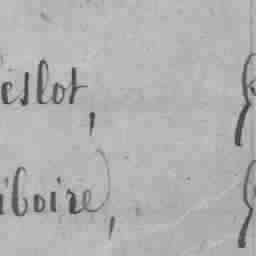 eslot,
iboire,